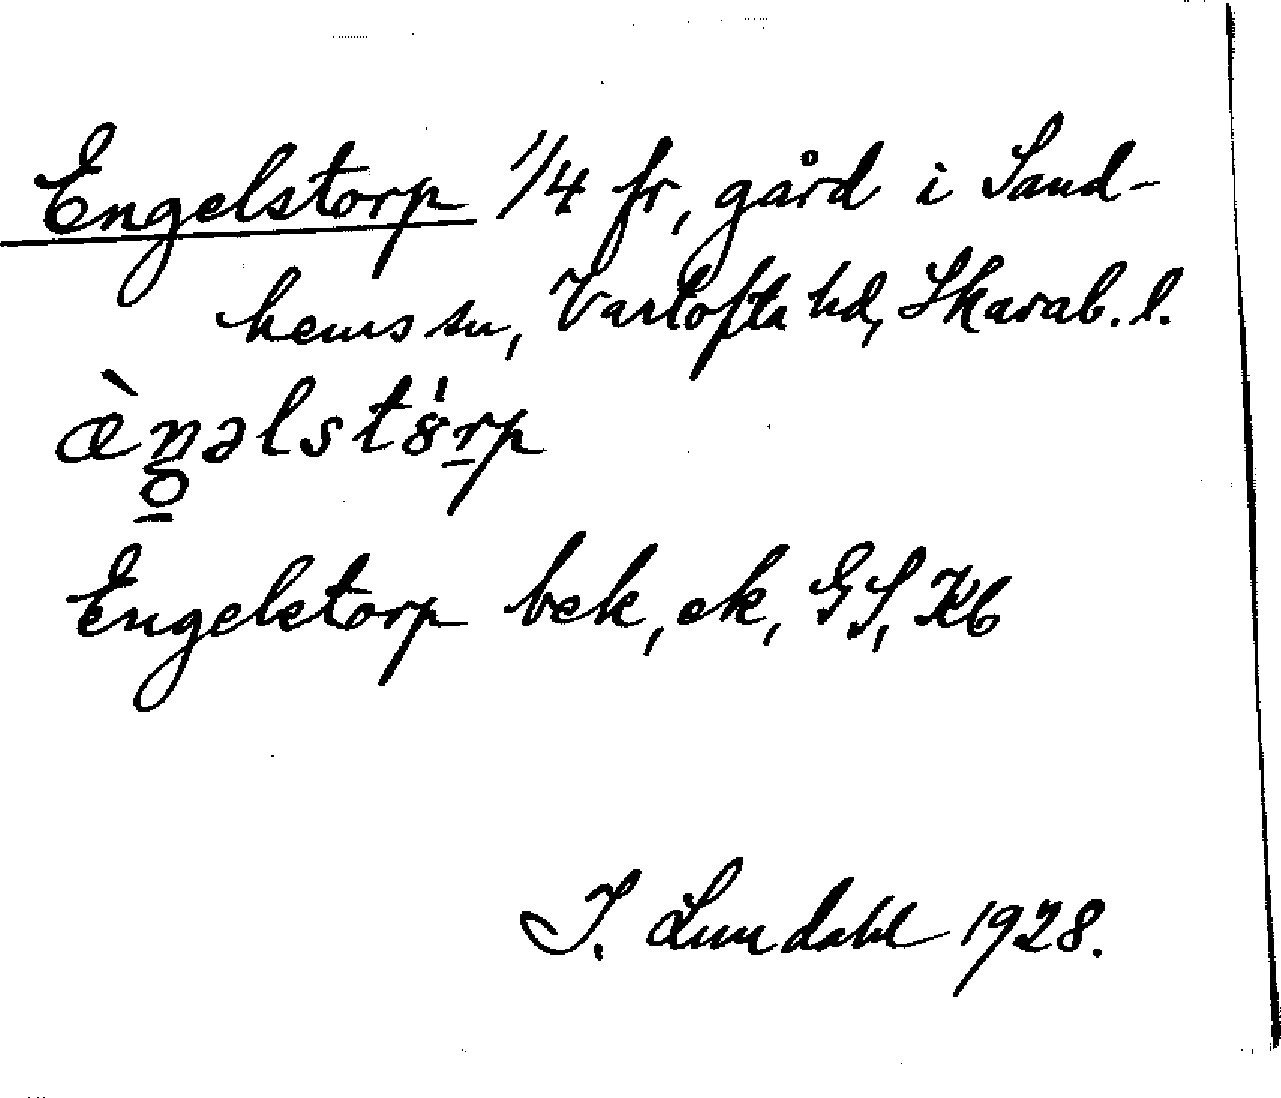 Engelstorp 1/4 fr, gård i Sand-
hems sn, Vartofta hd, Skarab. l.
æ̀ŋəlstȣ́rp
Engelstorp bek, ek, GS, Kb
I. Lundahl 1928.